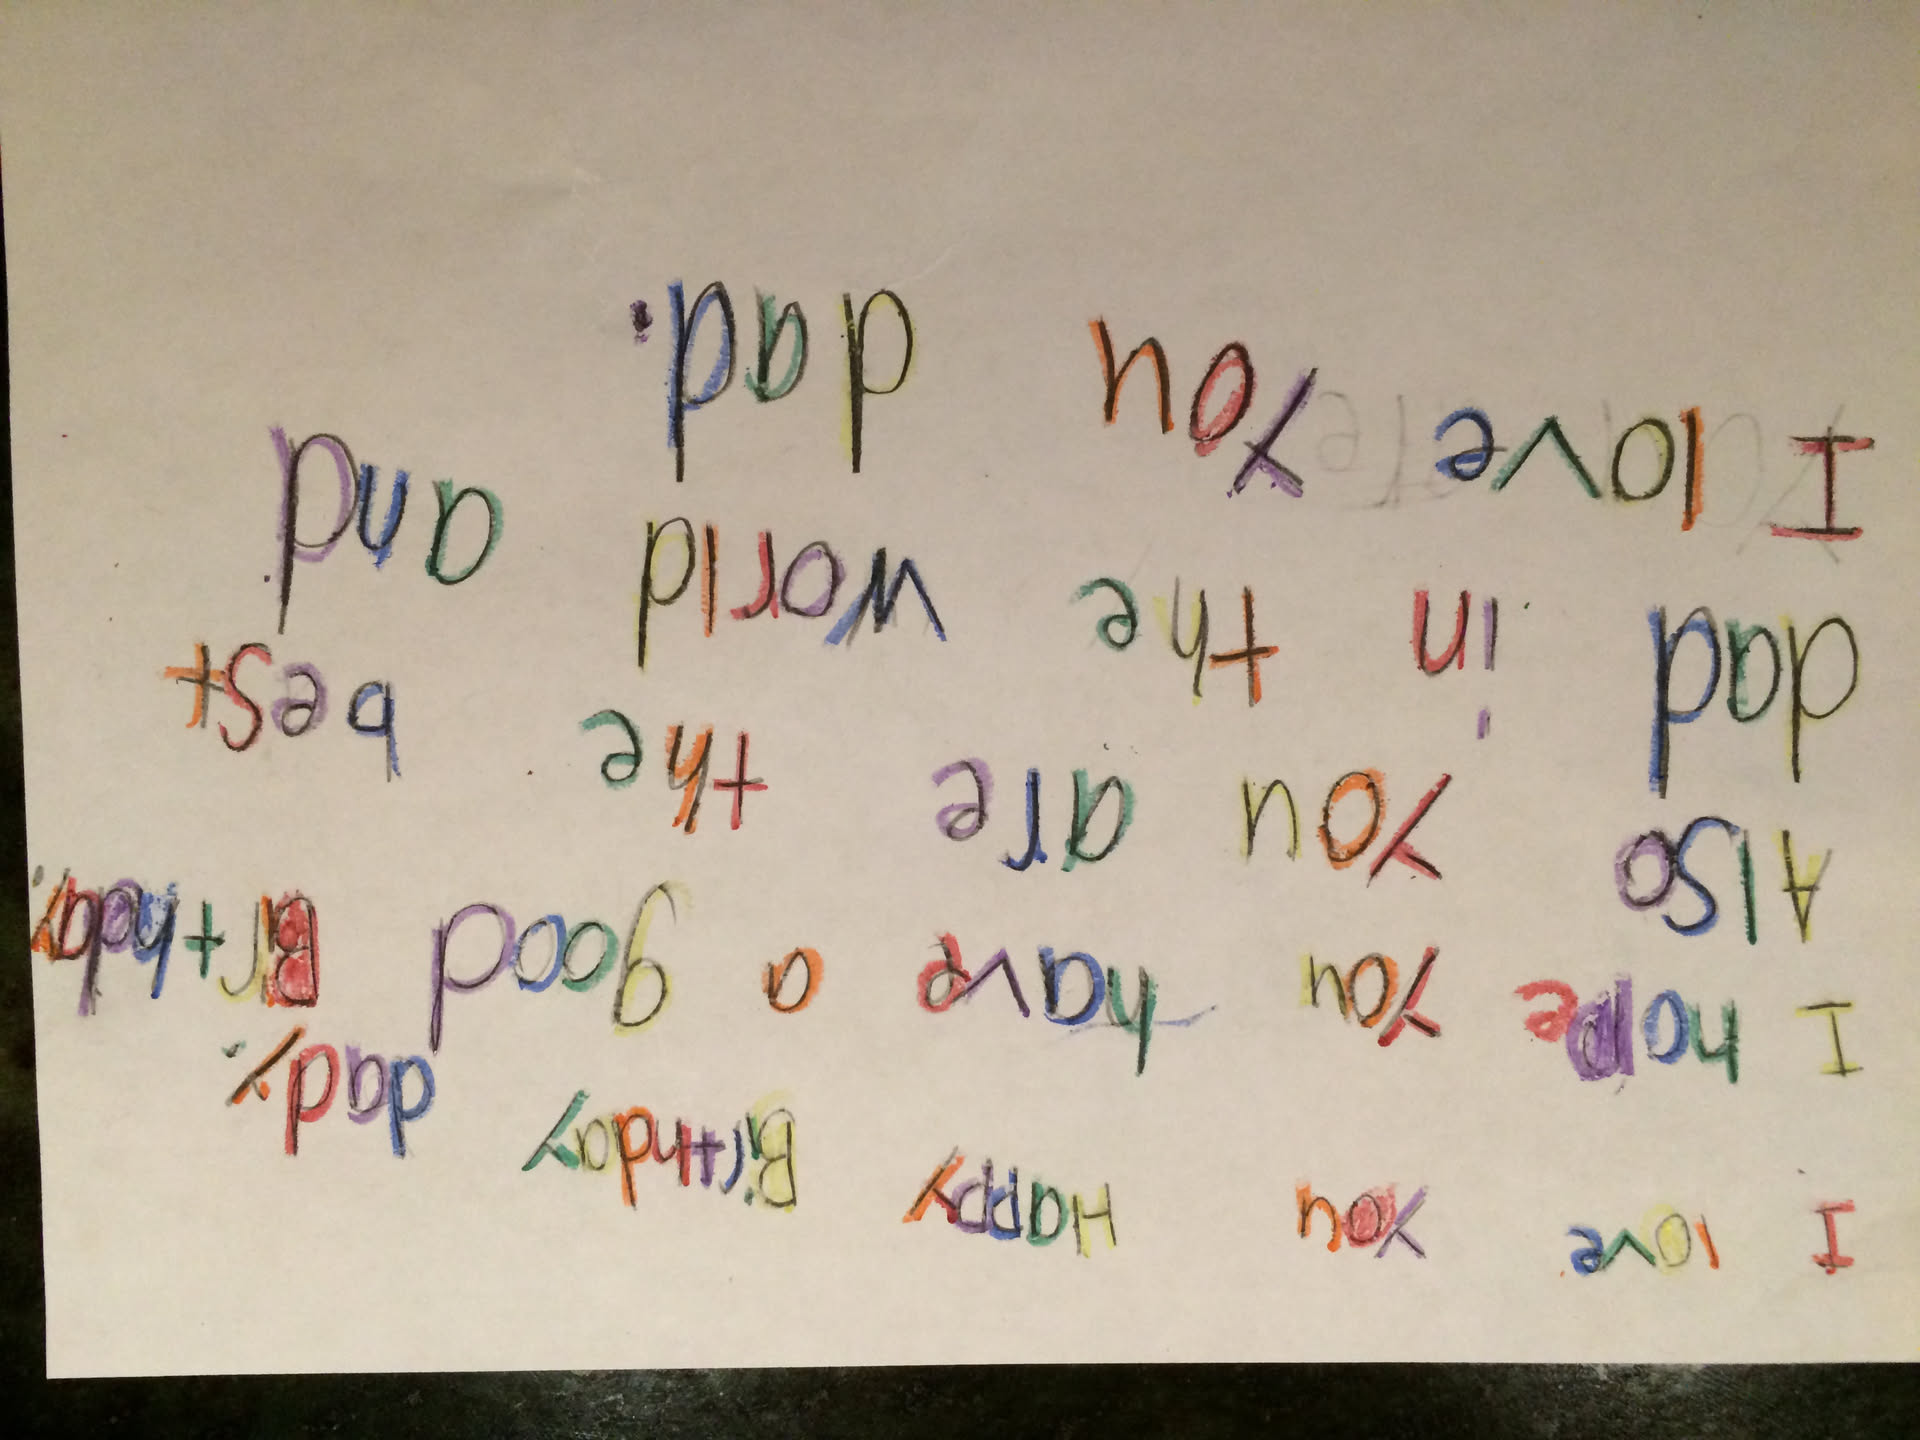 I love You Happy Birthday dady.
I hope You have a good Birthday.
Also You are the best
dad in the world and
I love You dad.